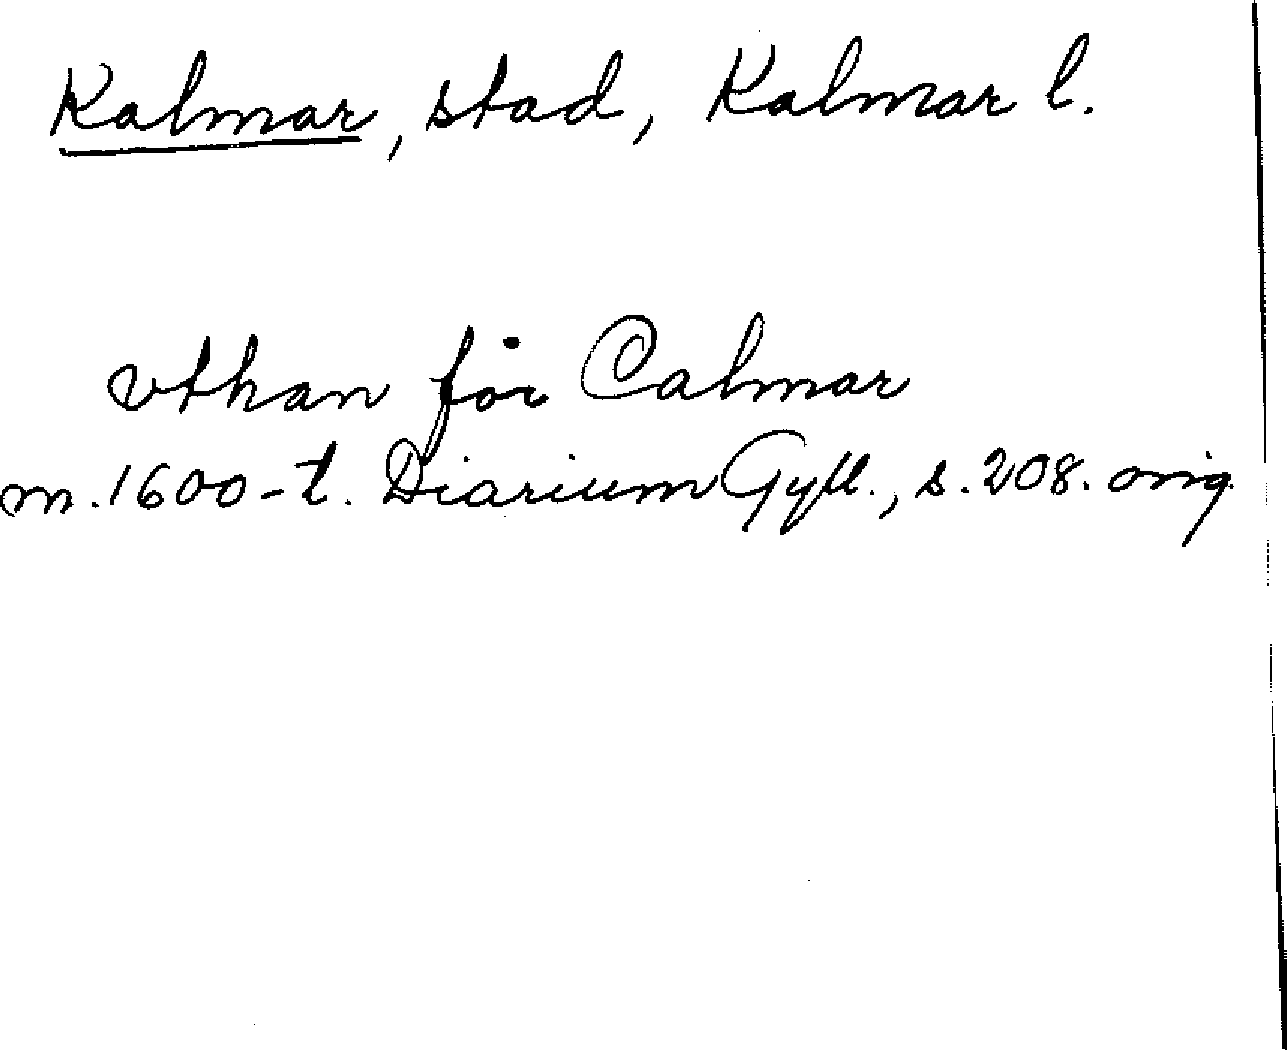 Kalmar, stad, Kalmar l.
vthan för Calmar
m.1600-t. Diarium Gyll., s.208. orig.